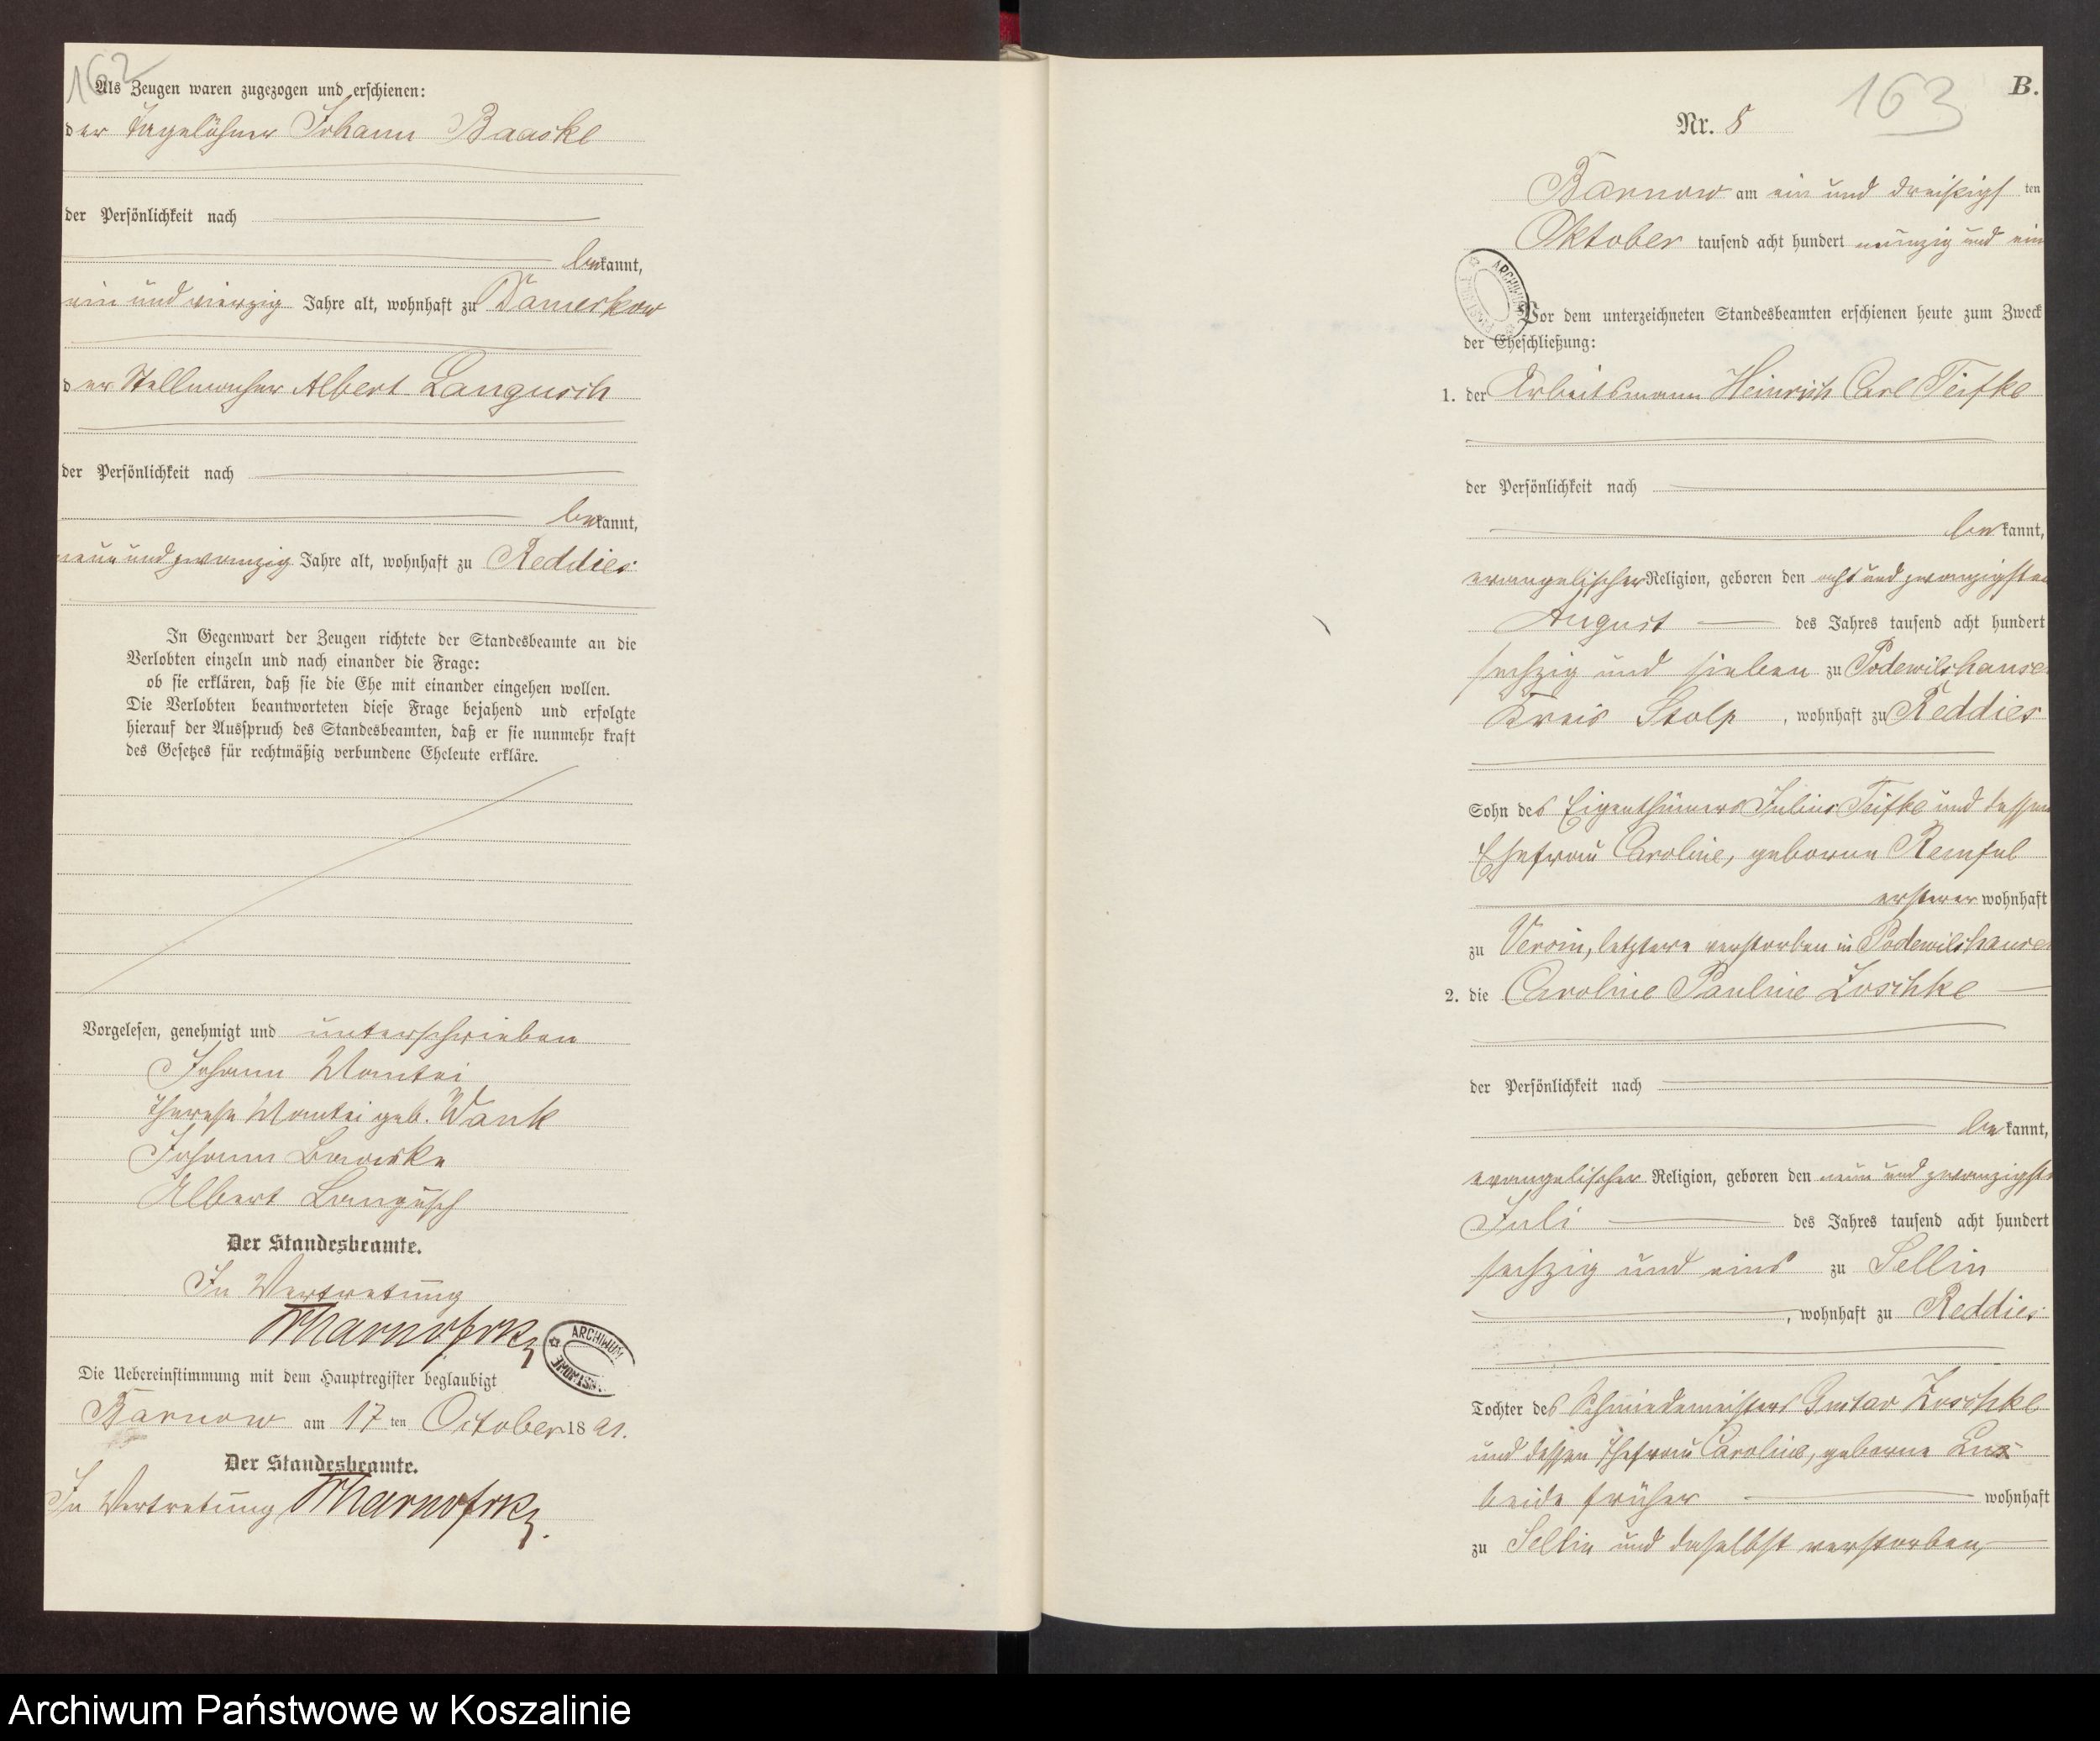 162
Als Zeugen waren zugezogen und erschienen:
der Tagelöhner Johann Baaske
der Persönlichkeit nach
bekannt,
ein und vierzig Jahre alt, wohnhaft zu Damerkow
der Stellmacher Albert Langusch
der Persönlichkeit nach
bekannt,
neun und zwanzig Jahre alt, wohnhaft zu Reddies
In Gegenwart der Zeugen richtete der Standesbeamte an die
Verlobten einzeln und nach einander die Frage:
ob sie erklären, daß sie die Ehe mit einander eingehen wollen.
Die Verlobten beantworteten diese Frage bejahend und erfolgte
hierauf der Ausspruch des Standesbeamten, daß er sie nunmehr kraft
des Gesetzes für rechtmäßig verbundene Eheleute erkläre.
Vorgelesen, genehmigt und unterschrieben
Johann Mantei
Therese Mantei geb. Wank
Johann Baaske
Albert Langusch
Der Standesbeamte.
In Vertretung
ARCHIWUM
Die Uebereinstimmung mit dem Hauptregister beglaubigt
Barnow am 17 ten October 18 91.
Der Standesbeamte.
In Vertretung
163
B.
Nr. 8
Barnow am ein und dreißigs ten
Oktober tausend acht hundert neunzig und ein
ARCHIWUM
Vor dem unterzeichneten Standesbeamten erschienen heute zum Zweck
der Eheschließung:
1. der Arbeitsmann Heinrich Carl Teifke
der Persönlichkeit nach
bekannt,
evangelischer Religion, geboren den acht und zwanzigsten
August des Jahres tausend acht hundert
sechzig und sieben zu Podewilshausen
Kreis Stolp, wohnhaft zu Reddies
Sohn des Eigenthümers Julius Teifke und dessen
Ehefrau Caroline, geborne
ersterer wohnhaft
zu Versin, letztere verstorben in Podewilshausen
2. die Caroline Pauline Zoschke
der Persönlichkeit nach
bekannt,
evangelischer Religion, geboren den neun und zwanzigsten
Juli des Jahres tausend acht hundert
sechzig und eins zu Sellin
, wohnhaft zu Reddies
Tochter des Schmiedemeisters Gustav Zoschke
und dessen Ehefrau Caroline, geborne
beide früher wohnhaft
zu Sellin und daselbst verstorben,
Archiwum Państwowe w Koszalinie